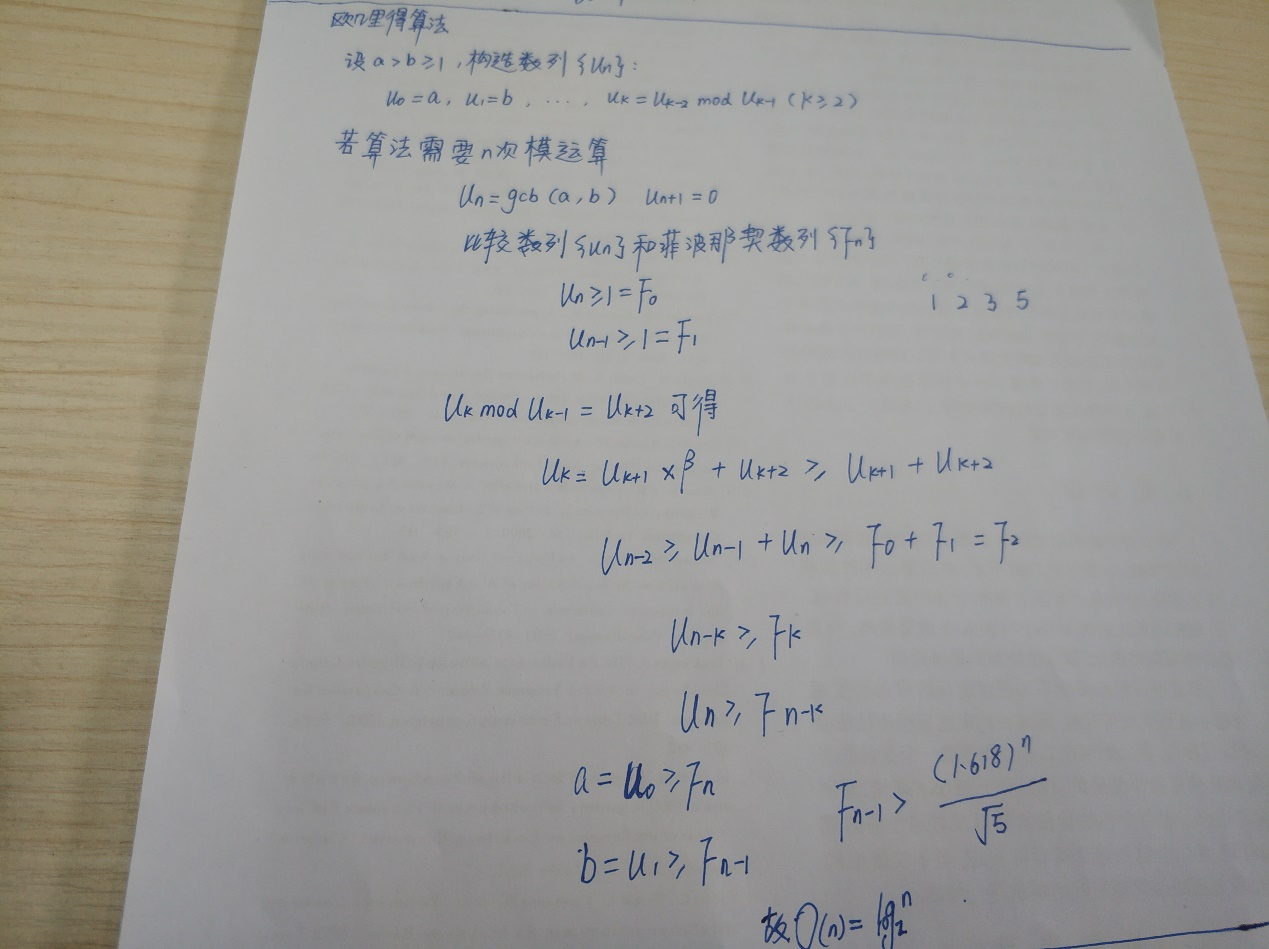 欧几里得算法
设a>b≥1,构造数列{Un}:
U₀=a, U₁=b, ···, Uₖ=Uₖ₋₂ mod Uₖ₋₁ (k≥2)
若算法需要n次模运算
Uₙ=gcb(a,b) Uₙ₊₁=0
比较数列{Un}和菲波那契数列{Fn}
Uₙ≥1=F₀
1 2 3 5
Uₙ₋₁≥1=F₁
Uₖ mod Uₖ₋₁ = Uₖ₊₂ 可得
Uₖ = Uₖ₊₁ × β + Uₖ₊₂ ≥ Uₖ₊₁ + Uₖ₊₂
Uₙ₋₂ ≥ Uₙ₋₁ + Uₙ ≥ F₀ + F₁ = F₂
Uₙ₋ₖ ≥ Fₖ
Uₙ ≥ Fₙ₋ₖ
a = U₀ ≥ Fₙ
Fₙ₋₁ > (1.618)ⁿ / √5
b = U₁ ≥ Fₙ₋₁
故O(n) = log₂ⁿ